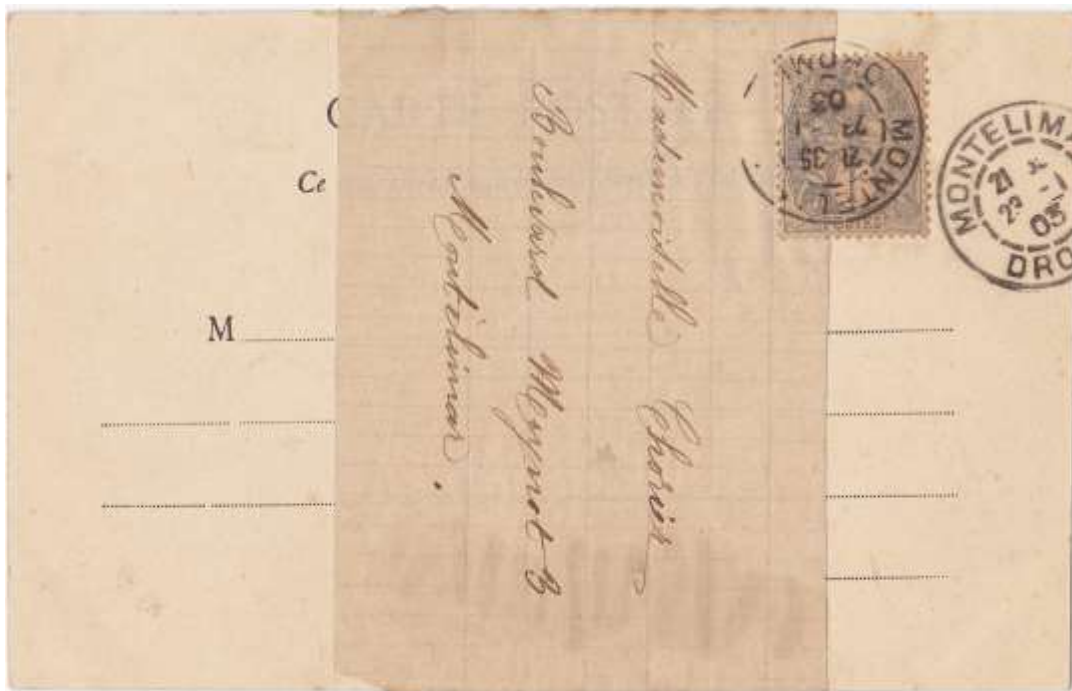 C
Ce
M
Mademoiselle Chorier
Boulevard Meynot 3
Montélimar.
MONTEL
DROM
21 35
23 -1
03
MONTELIMA
21
23 -1
03
DRO